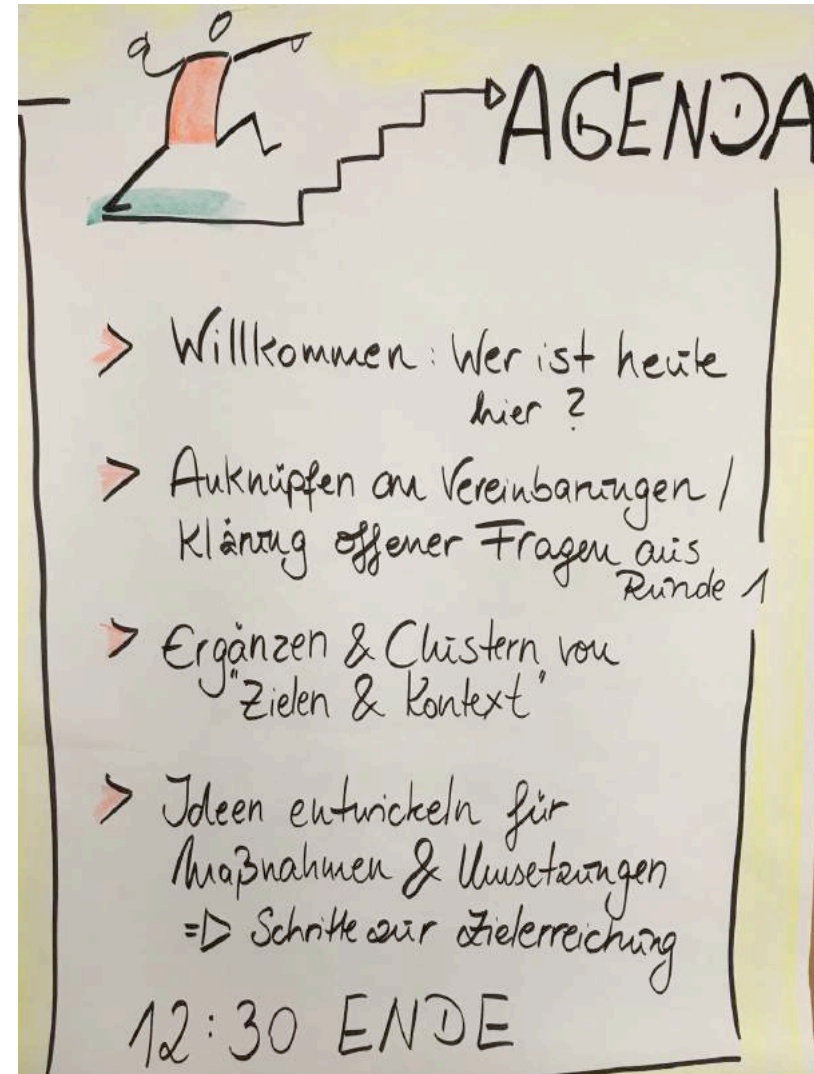 AGENDA
> Willkommen: Wer ist heute
hier ?
> Anknüpfen an Vereinbarungen /
Klärung offener Fragen aus
Runde 1
> Ergänzen & Clustern von
"Zielen & Kontext"
> Ideen entwickeln für
Maßnahmen & Umsetzungen
=> Schritte zur Zielerreichung
12:30 ENDE